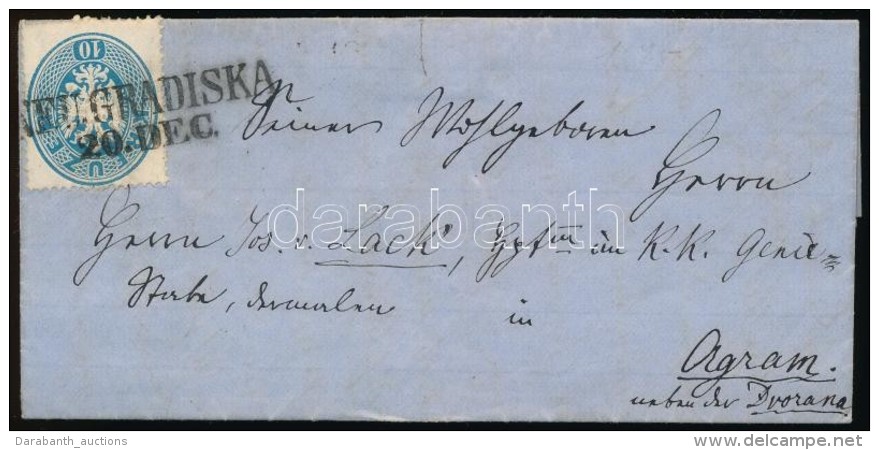 10
NEU-GRADISKA
20. DEC.
Seiner Wohlgeboren
Herrn
Herrn Jos. v. Lack, Hptm im K.K. Genie=
Stabe, dermalen in
Agram.
neben der Dvorana
darabanth
Darabanth_auctions
www.delcampe.net